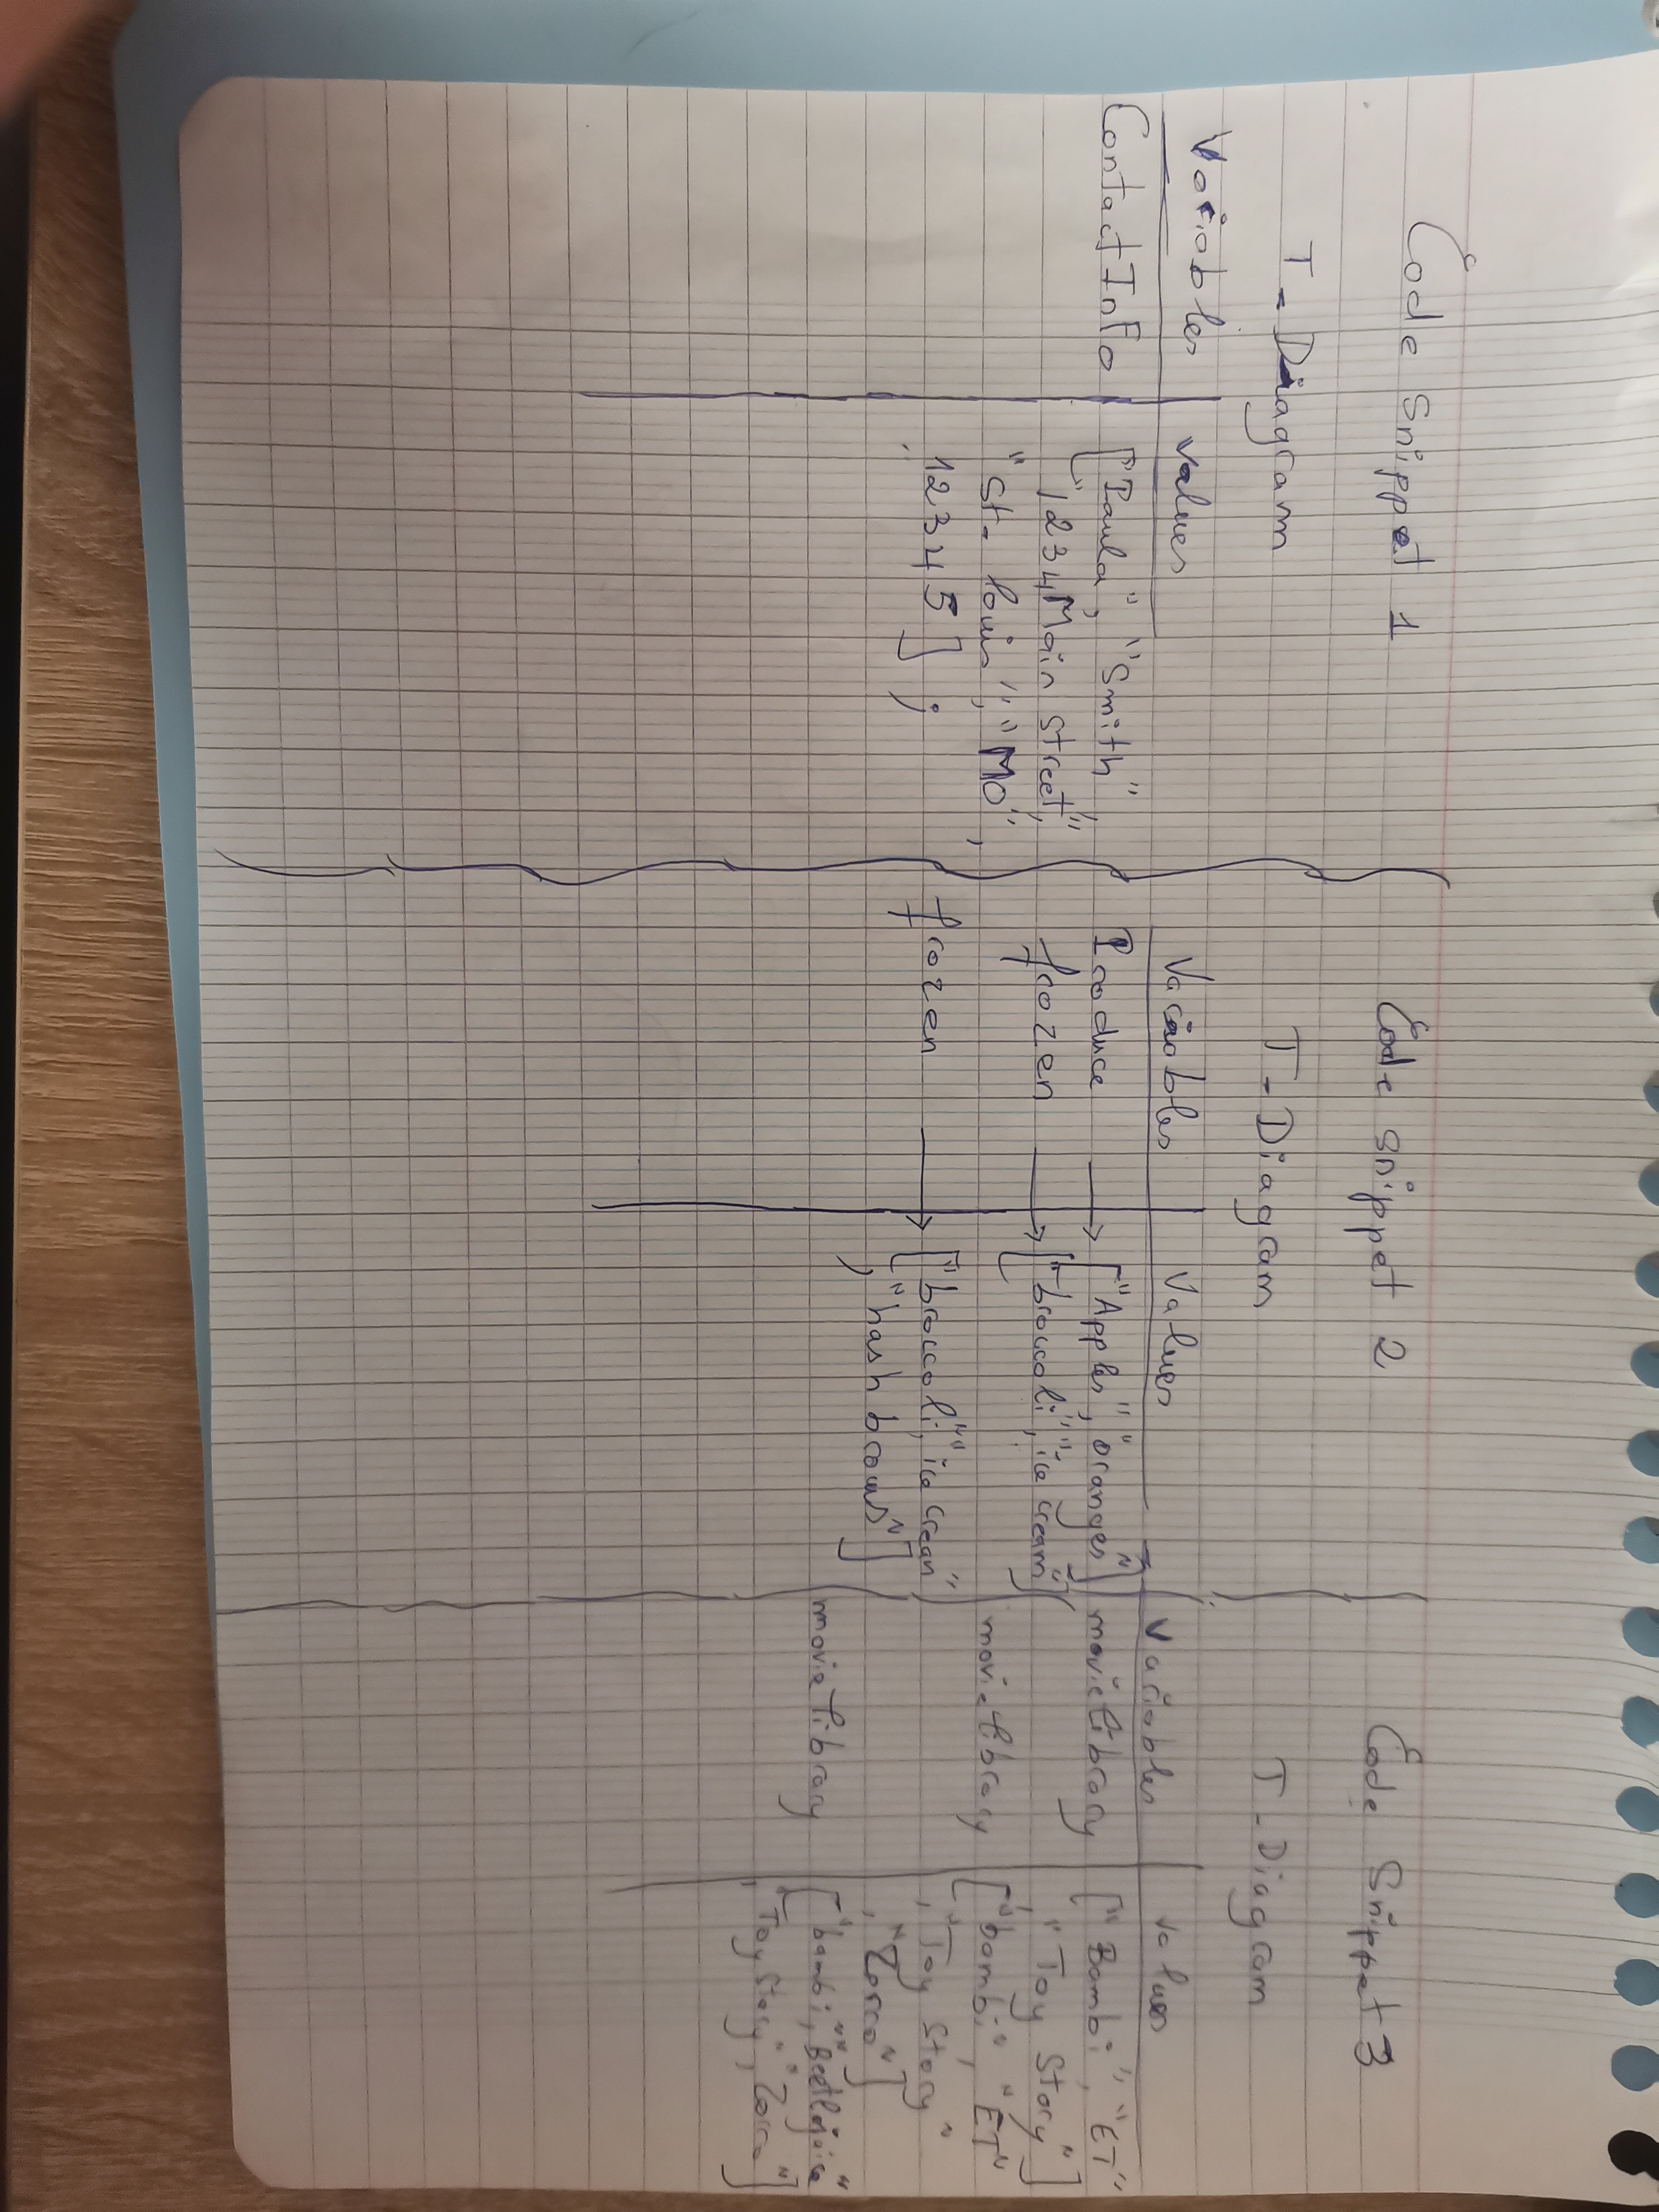 Code Snippet 1
T - Diagram
Variables | Values
ContactInfo | ["Paula", "Smith",
"1234 Main street",
"St. louis", "MO",
12345] ;
Code snippet 2
T - Diagram
Variables | Values
Produce → ["Apples", "oranges"]
frozen → ["broccoli", "ice cream"]
frozen → ["broccoli", "ice cream"
, "hash browns"]
Code Snippet 3
T - Diagram
Variables | Values
movielibrary | ["Bambi", "ET"
, "Toy Story"]
movielibrary | ["bambi", "ET"
, "Toy Story"
, "Zorro"]
movielibrary | ["bambi", "Beetlejuice"
, "Toy Story", "Zorro"]